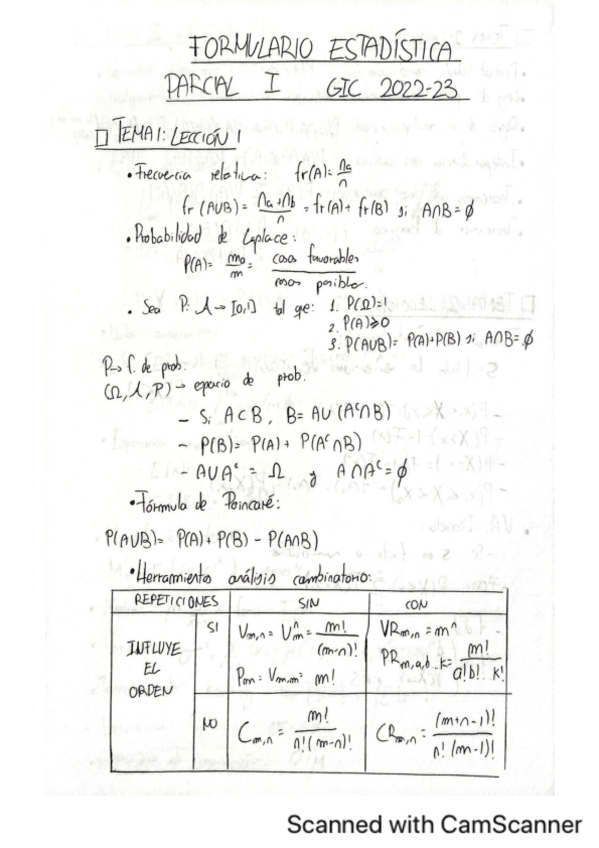 FORMULARIO ESTADÍSTICA
PARCIAL I GIC 2022-23
□ TEMA 1: LECCIÓN 1
• Frecuencia relativa: fr(A) = na/n
fr(A∪B) = (na+nb)/n = fr(A) + fr(B) si A∩B = ∅
• Probabilidad de Laplace:
P(A) = ma/m = casos favorables / casos posibles
• Sea P: A → [0,1] tal que: 1. P(Ω)=1
2. P(A)≥0
3. P(A∪B) = P(A)+P(B) si A∩B = ∅
P → f. de prob.
(Ω, A, P) → espacio de prob.
- Si A⊂B, B = A∪(Aᶜ∩B)
- P(B) = P(A) + P(Aᶜ∩B)
- A∪Aᶜ = Ω y A∩Aᶜ = ∅
• Fórmula de Poincaré:
P(A∪B) = P(A) + P(B) - P(A∩B)
• Herramientas análisis combinatorio:
REPETICIONES SIN CON
INFLUYE EL ORDEN
SI
Vm,n = Vmⁿ = m!/(m-n)!
Pm = Vm,m = m!
VRm,n = mⁿ
PRm,a,b..k = m!/(a!b!..k!)
NO
Cm,n = m!/(n!(m-n)!)
CRm,n = (m+n-1)!/(n!(m-1)!)
Scanned with CamScanner